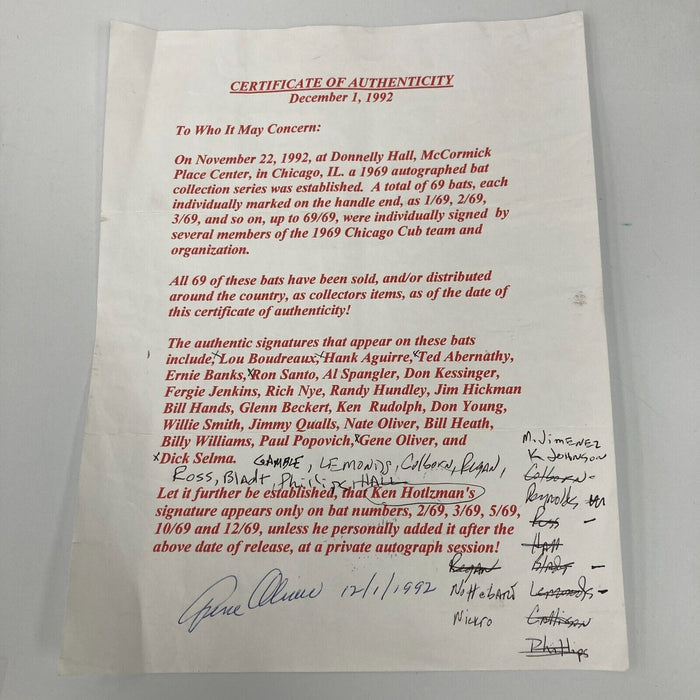 CERTIFICATE OF AUTHENTICITY
December 1, 1992
To Who It May Concern:
On November 22, 1992, at Donnelly Hall, McCormick
Place Center, in Chicago, IL. a 1969 autographed bat
collection series was established. A total of 69 bats, each
individually marked on the handle end, as 1/69, 2/69,
3/69, and so on, up to 69/69, were individually signed by
several members of the 1969 Chicago Cub team and
organization.
All 69 of these bats have been sold, and/or distributed
around the country, as collectors items, as of the date of
this certificate of authenticity!
The authentic signatures that appear on these bats
include, Lou Boudreaux, Hank Aguirre, Ted Abernathy,
Ernie Banks, Ron Santo, Al Spangler, Don Kessinger,
Fergie Jenkins, Rich Nye, Randy Hundley, Jim Hickman
Bill Hands, Glenn Beckert, Ken Rudolph, Don Young,
Willie Smith, Jimmy Qualls, Nate Oliver, Bill Heath,
Billy Williams, Paul Popovich, Gene Oliver, and
Dick Selma. GAMBLE, LEMONDS, Colborn, Regan,
Ross, Bladt, Phillips, HALL
Let it further be established, that Ken Hotlzman's
signature appears only on bat numbers, 2/69, 3/69, 5/69,
10/69 and 12/69, unless he personally added it after the
above date of release, at a private autograph session!
Gene Oliver 12/1/1992
M. JIMENEZ
K JOHNSON
Colborn -
Reynolds
Ross -
Hall
Bladt -
Lemonds -
Callison
Phillips
Regan
Nottebart
Niekro